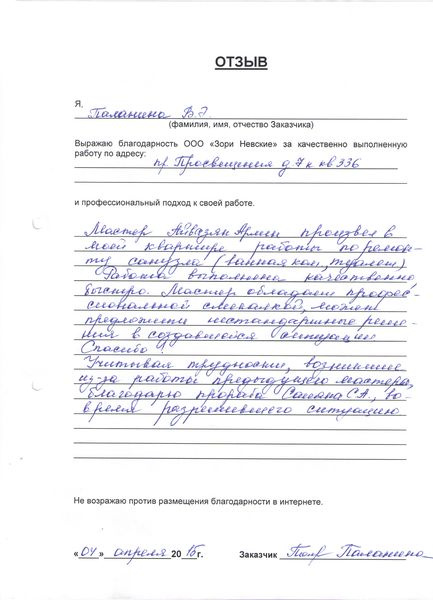 ОТЗЫВ
Я,
Паланина В.Э
(фамилия, имя, отчество Заказчика)
Выражаю благодарность ООО «Зори Невские» за качественно выполненную
работу по адресу:
пр Просвещения д 7 к кв 336
и профессиональный подход к своей работе.
Мастер Айвазян Армен произвел в
моей квартире работы по ремон-
ту санузла (ванная ком, туалет)
Работы выполнена качественно,
быстро. Мастер обладает профес-
сиональной смекалкой, может
предложить нестандартные реше-
ния в создавшейся ситуации
Спасибо!
Учитывая трудности, возникшие
из-за работы предыдущего мастера,
благодарю прораба С.А., во-
время разрешившего ситуацию
Не возражаю против размещения благодарности в интернете.
«04» апреля 2016г. Заказчик Паланина